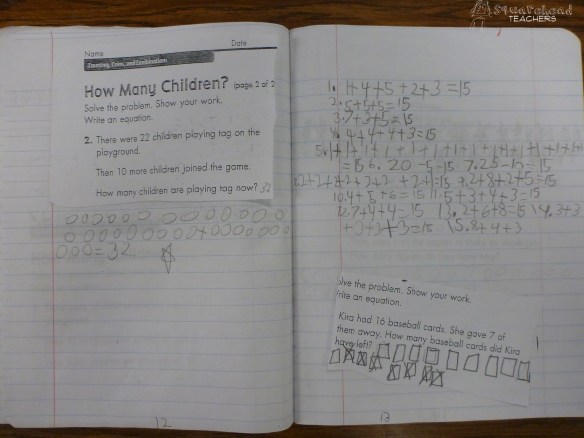 Squarehead
TEACHERS
Name Date
Counting, Coins, and Combinations
How Many Children? (page 2 of 2
Solve the problem. Show your work.
Write an equation.
2. There were 22 children playing tag on the
playground.
Then 10 more children joined the game.
How many children are playing tag now? 32
= 32
12
1. 1+4+5+2+3=15
2. 5+5+5=15
3. 7+3+5=15
4. 4+4+4+3=15
5. 1+1+1+1+1+1+1+1+1+1+1+1+1+1+1
=15 6. 20-5=15 7. 25-10=15
8. 2+2+2+2+2+2+2+1=15 9. 2+8+2+5=15
10. 4+5+6=15 11. 5+3+4+3=15
12. 7+4+4=15 13. 2+6+8=15 14. 3+3
+3+3+3=15 15. 8+4+3
olve the problem. Show your work.
rite an equation.
Kira had 16 baseball cards. She gave 7 of
them away. How many baseball cards did Kira
have left?
13